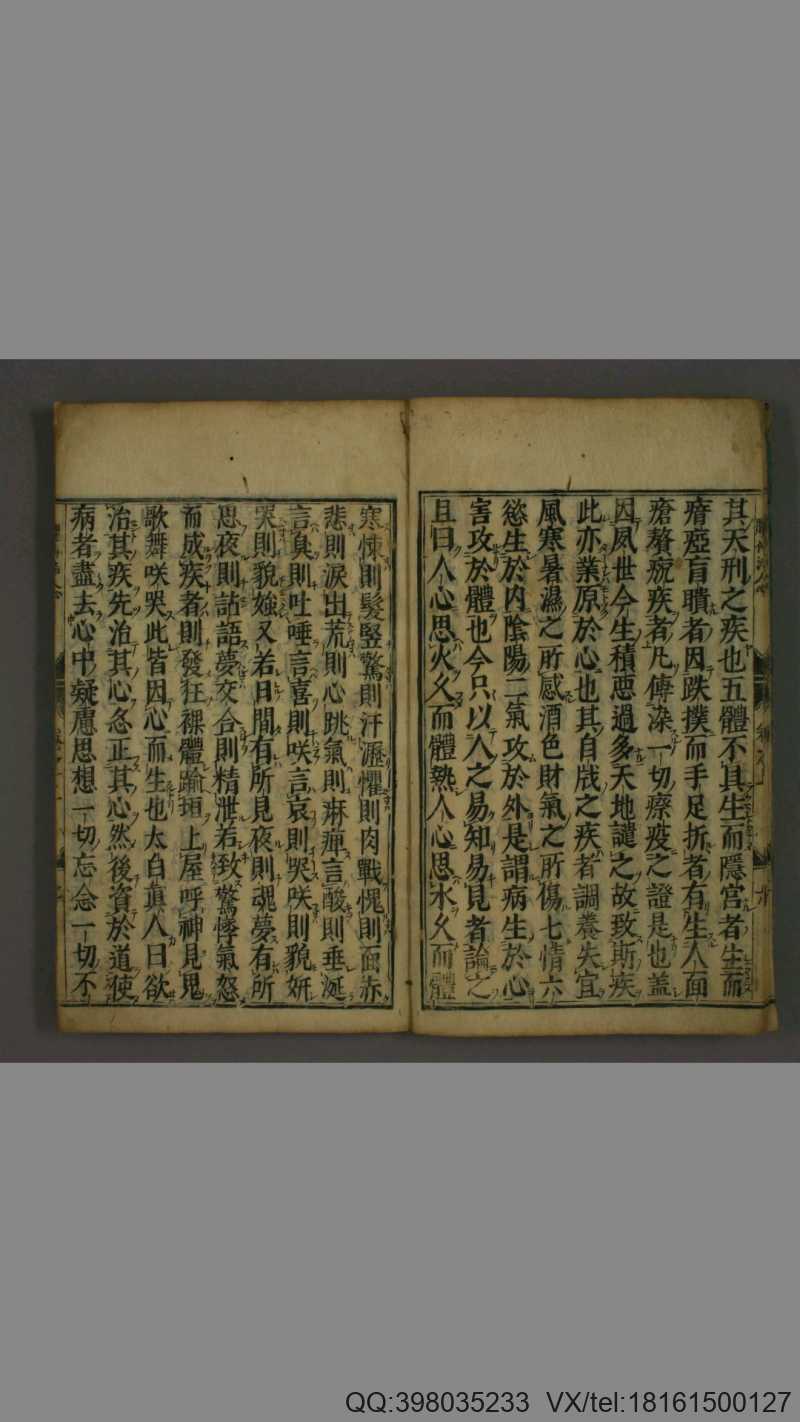 其天刑之疾也五體不具生而隱宮者生而
瘖瘂盲聵者因跌撲而手足折者有生人面
瘡贅疣疾者凡傳染一切瘵疫之證是也蓋
因夙世今生積惡過多天地譴之故致斯疾
此亦業原於心也其自戕之疾者調養失宜
風寒暑濕之所感酒色財氣之所傷七情六
慾生於内陰陽二氣攻於外是謂病生於心
害攻於體也今只以人之易知易見者論之
且曰人心思火久而體熱人心思水久而體
寒悚則髮竪驚則汗瀝懼則肉戰愧則面赤
悲則淚出荒則心跳氣則麻痺言酸則垂涎
言臭則吐唾言喜則咲言哀則哭咲則貌妍
哭則貌媸又若日間有所見夜則魂夢有所
思夜則詀語夢交合則精泄若致驚悸氣怒
而成疾者則發狂裸體踰垣上屋呼神見鬼
歌舞咲哭此皆因心而生也太白真人曰欲
治其疾先治其心必正其心然後資於道使
病者盡去心中疑慮思想一切忘念一切不
QQ:398035233 VX/tel:18161500127